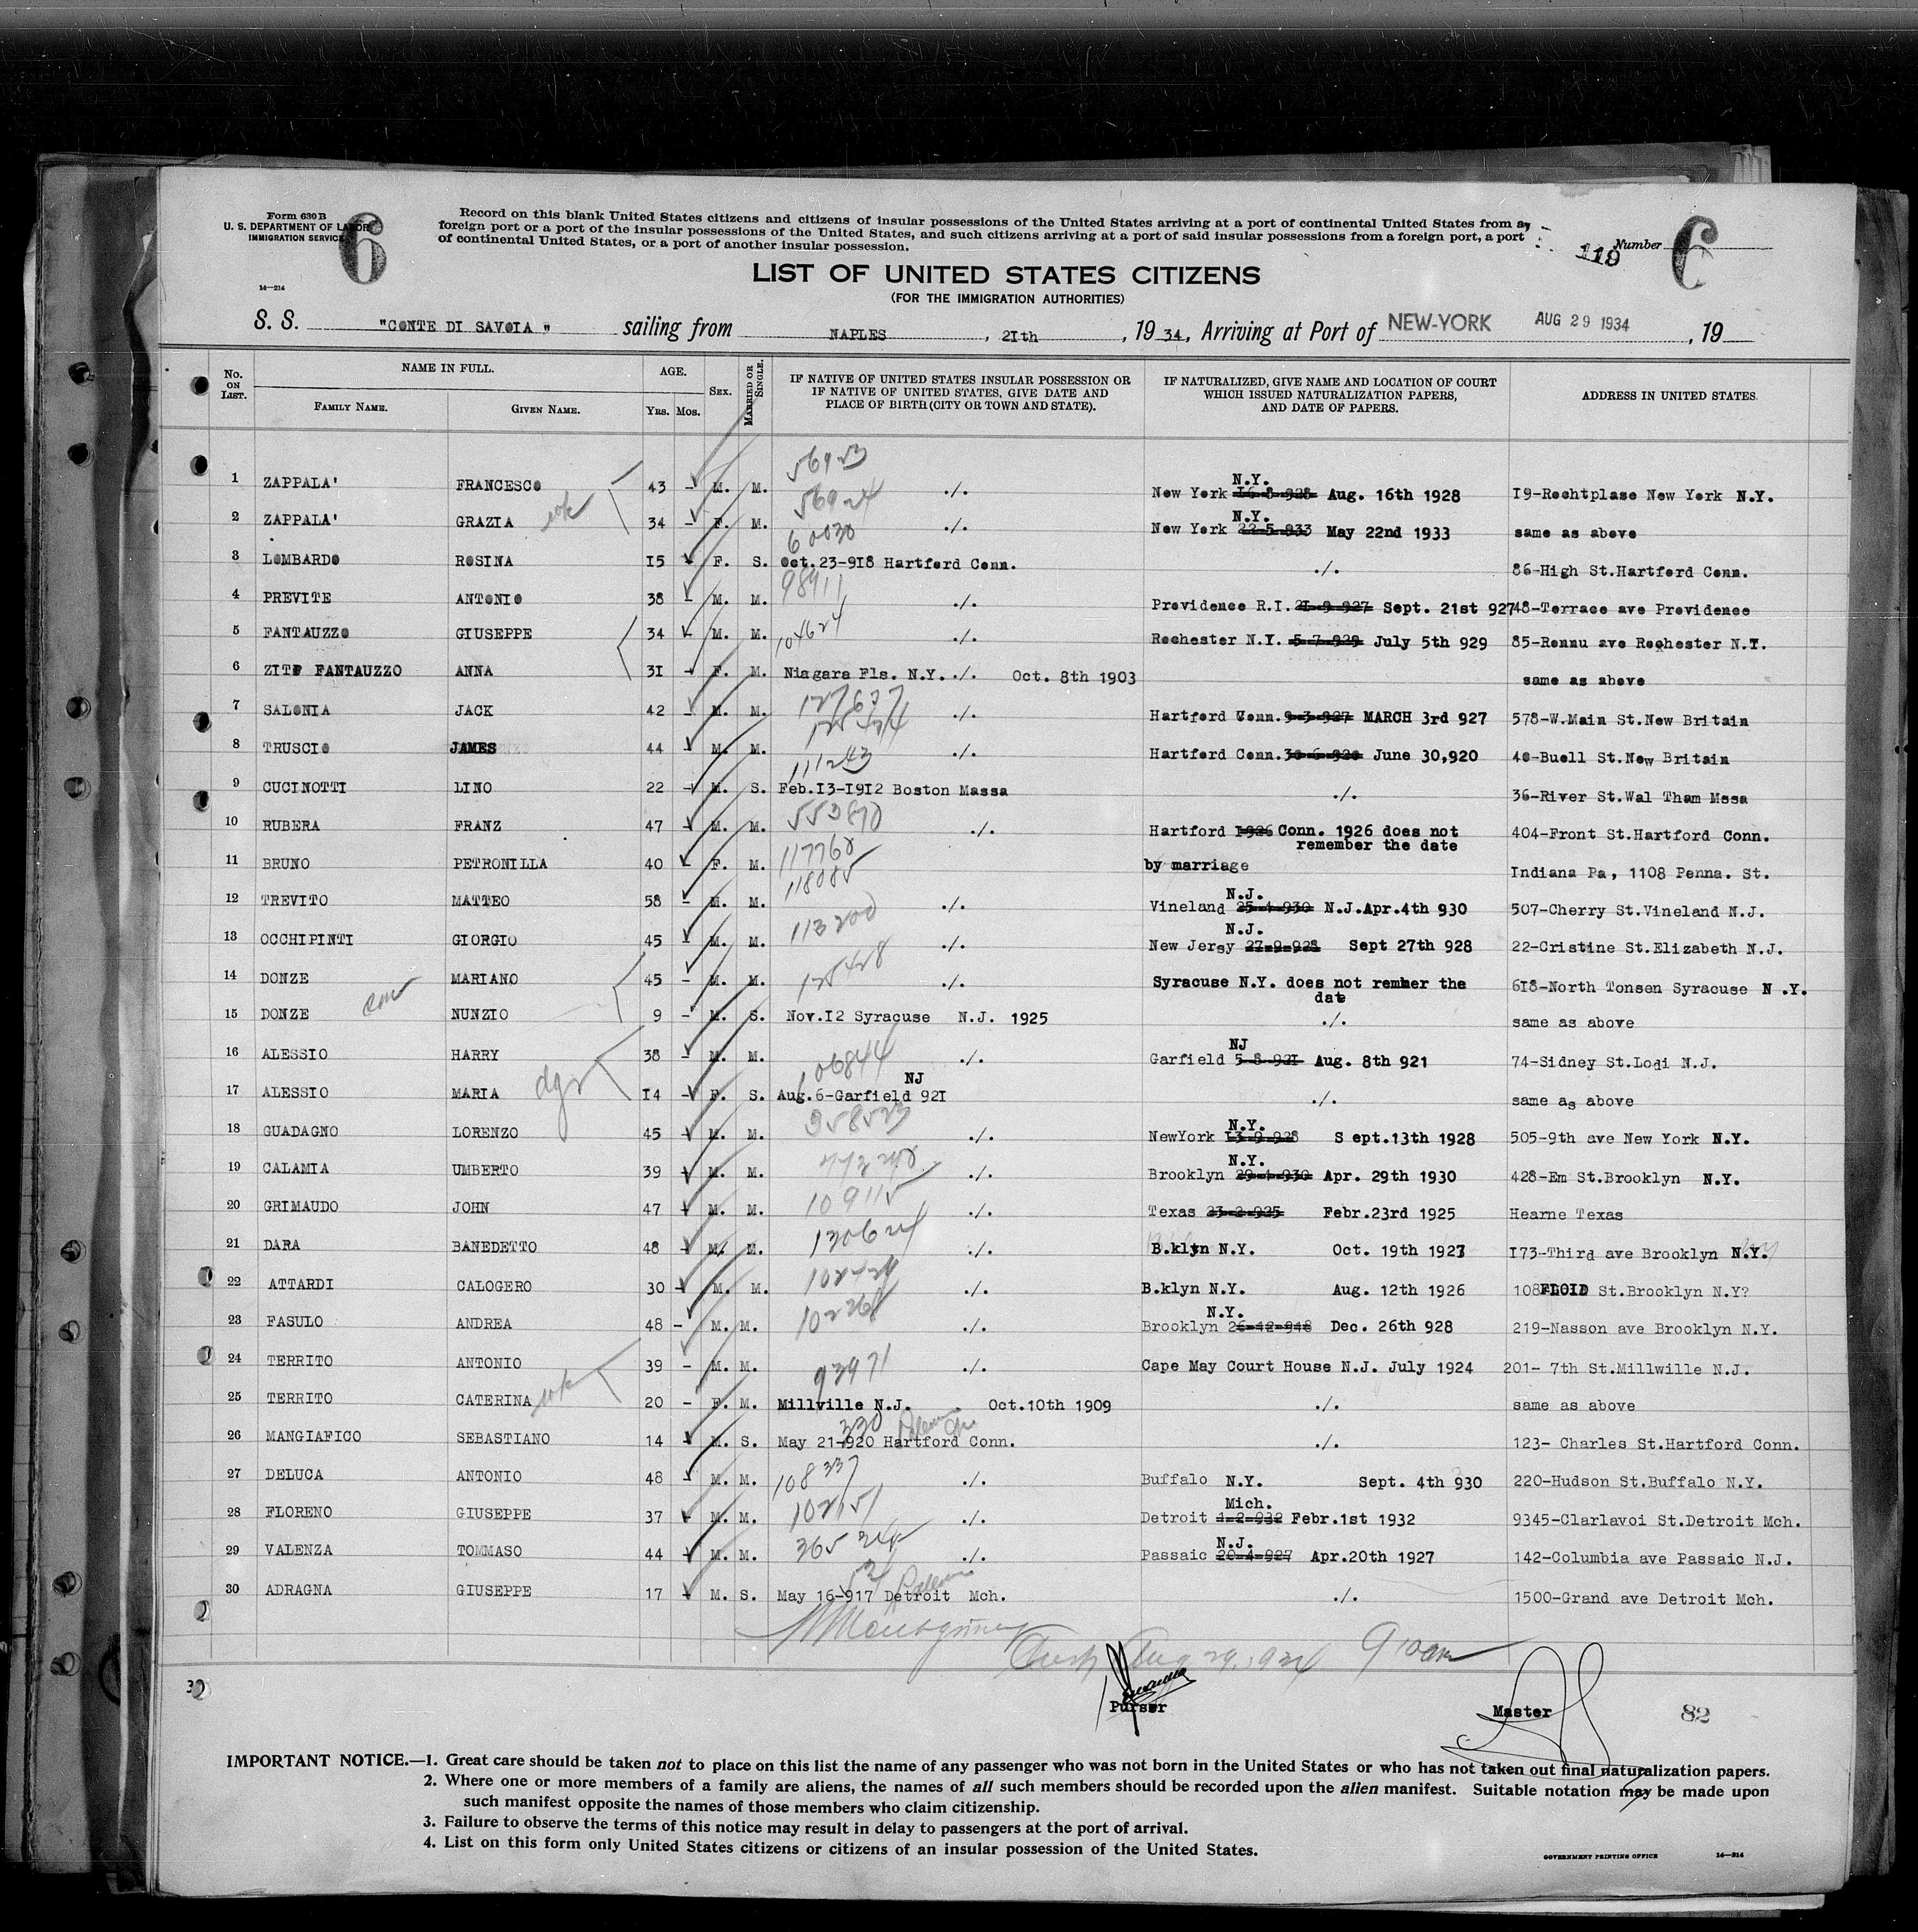 Form 630 B
U. S. DEPARTMENT OF LABOR
IMMIGRATION SERVICE
6
14—214
Record on this blank United States citizens and citizens of insular possessions of the United States arriving at a port of continental United States from a
foreign port or a port of the insular possessions of the United States, and such citizens arriving at a port of said insular possessions from a foreign port, a port
of continental United States, or a port of another insular possession.
119 Number 6
LIST OF UNITED STATES CITIZENS
(FOR THE IMMIGRATION AUTHORITIES)
S. S. "CONTE DI SAVOIA" sailing from NAPLES, 21th, 19 34, Arriving at Port of NEW-YORK AUG 29 1934, 19
No. ON LIST. NAME IN FULL. FAMILY NAME. GIVEN NAME. AGE. YRS. MOS. SEX. MARRIED OR SINGLE. IF NATIVE OF UNITED STATES INSULAR POSSESSION OR IF NATIVE OF UNITED STATES, GIVE DATE AND PLACE OF BIRTH (CITY OR TOWN AND STATE). IF NATURALIZED, GIVE NAME AND LOCATION OF COURT WHICH ISSUED NATURALIZATION PAPERS, AND DATE OF PAPERS. ADDRESS IN UNITED STATES.
1 ZAPPALA' FRANCESCO 43 - M. M. 56953 ./. New York 16-8-928 N.Y. Aug. 16th 1928 19-Rechtplase New York N.Y.
2 ZAPPALA' GRAZIA wk 34 - F. M. 56924 ./. New York 22-5-933 N.Y. May 22nd 1933 same as above
3 LOMBARDO ROSINA 15 - F. S. 60030 Oct.23-918 Hartford Conn. ./. 86-High St.Hartford Conn.
4 PREVITE ANTONIO 38 - M. M. 98911 ./. Providence R.I. 21-9-927 Sept. 21st 927 48-Terrace ave Providence
5 FANTAUZZO GIUSEPPE 34 - M. M. 104624 ./. Rochester N.Y. 5-7-929 July 5th 929 85-Rennu ave Rochester N.Y.
6 ZITO FANTAUZZO ANNA 31 - F. M. Niagara Fls. N.Y. ./. Oct. 8th 1903 same as above
7 SALONIA JACK 42 - M. M. 127637 ./. Hartford Conn. 9-3-927 MARCH 3rd 927 578-W.Main St.New Britain
8 TRUSCIO JAMES 44 - M. M. ./. Hartford Conn. 30-6-920 June 30,920 40-Buell St.New Britain
9 CUCINOTTI LINO 22 - M. S. 111243 Feb.13-1912 Boston Massa ./. 36-River St.Wal Tham Mssa
10 RUBERA FRANZ 47 - M. M. 553890 ./. Hartford 1926 Conn. 1926 does not remember the date 404-Front St.Hartford Conn.
11 BRUNO PETRONILLA 40 - F. M. 117768 by marriage Indiana Pa, 1108 Penna. St.
12 TREVITO MATTEO 58 - M. M. 118085 ./. Vineland 25-4-930 N.J. N.J.Apr.4th 930 507-Cherry St.Vineland N.J.
13 OCCHIPINTI GIORGIO 45 - M. M. 113200 ./. New Jersy 27-9-928 N.J. Sept 27th 928 22-Cristine St.Elizabeth N.J.
14 DONZE MARIANO 45 - M. M. 125428 ./. Syracuse N.Y. does not remmer the date 618-North Tonsen Syracuse N .Y.
15 DONZE NUNZIO 9 - M. S. Nov.12 Syracuse N.J. 1925 ./. same as above
16 ALESSIO HARRY 38 - M. M. 106844 ./. Garfield 5-8-921 NJ Aug. 8th 921 74-Sidney St.Lodi N.J.
17 ALESSIO MARIA dgr 14 - F. S. Aug.6-Garfield NJ 921 ./. same as above
18 GUADAGNO LORENZO 45 - M. M. 358523 ./. NewYork 13-9-928 N.Y. S ept.13th 1928 505-9th ave New York N.Y.
19 CALAMIA UMBERTO 39 - M. M. ./. Brooklyn 29-4-930 N.Y. Apr. 29th 1930 428-Em St.Brooklyn N.Y.
20 GRIMAUDO JOHN 47 - M. M. 109115 ./. Texas 23-2-925 Febr.23rd 1925 Hearne Texas
21 DARA BANEDETTO 48 - M. M. 130624 ./. B.klyn N.Y. Oct. 19th 1927 173-Third ave Brooklyn N.Y.
22 ATTARDI CALOGERO 30 - M. M. 102424 ./. B.klyn N.Y. Aug. 12th 1926 108FLOID St.Brooklyn N.Y?
23 FASULO ANDREA 48 - M. M. 102268 ./. Brooklyn 26-12-948 N.Y. Dec. 26th 928 219-Nasson ave Brooklyn N.Y.
24 TERRITO ANTONIO 39 - M. M. 93971 ./. Cape May Court House N.J. July 1924 201- 7th St.Millwille N.J.
25 TERRITO CATERINA wk 20 - F. M. Millville N.J. Oct.10th 1909 ./. same as above
26 MANGIAFICO SEBASTIANO 14 - M. S. 330 May 21-920 Hartford Conn. ./. 123- Charles St.Hartford Conn.
27 DELUCA ANTONIO 48 - M. M. 108337 ./. Buffalo N.Y. Sept. 4th 930 220-Hudson St.Buffalo N.Y.
28 FLORENO GIUSEPPE 37 - M. M. 102151 ./. Detroit 1-2-932 Mich. Febr.1st 1932 9345-Clarlavoi St.Detroit Mch.
29 VALENZA TOMMASO 44 - M. M. ./. Passaic 20-4-927 N.J. Apr.20th 1927 142-Columbia ave Passaic N.J.
30 ADRAGNA GIUSEPPE 17 - M. S. May 16-917 Detroit Mch. ./. 1500-Grand ave Detroit Mch.
Aug 29, 1934 9 10 am
Purser
Master
82
IMPORTANT NOTICE.—1. Great care should be taken not to place on this list the name of any passenger who was not born in the United States or who has not taken out final naturalization papers.
2. Where one or more members of a family are aliens, the names of all such members should be recorded upon the alien manifest. Suitable notation may be made upon
such manifest opposite the names of those members who claim citizenship.
3. Failure to observe the terms of this notice may result in delay to passengers at the port of arrival.
4. List on this form only United States citizens or citizens of an insular possession of the United States.
GOVERNMENT PRINTING OFFICE 14—214